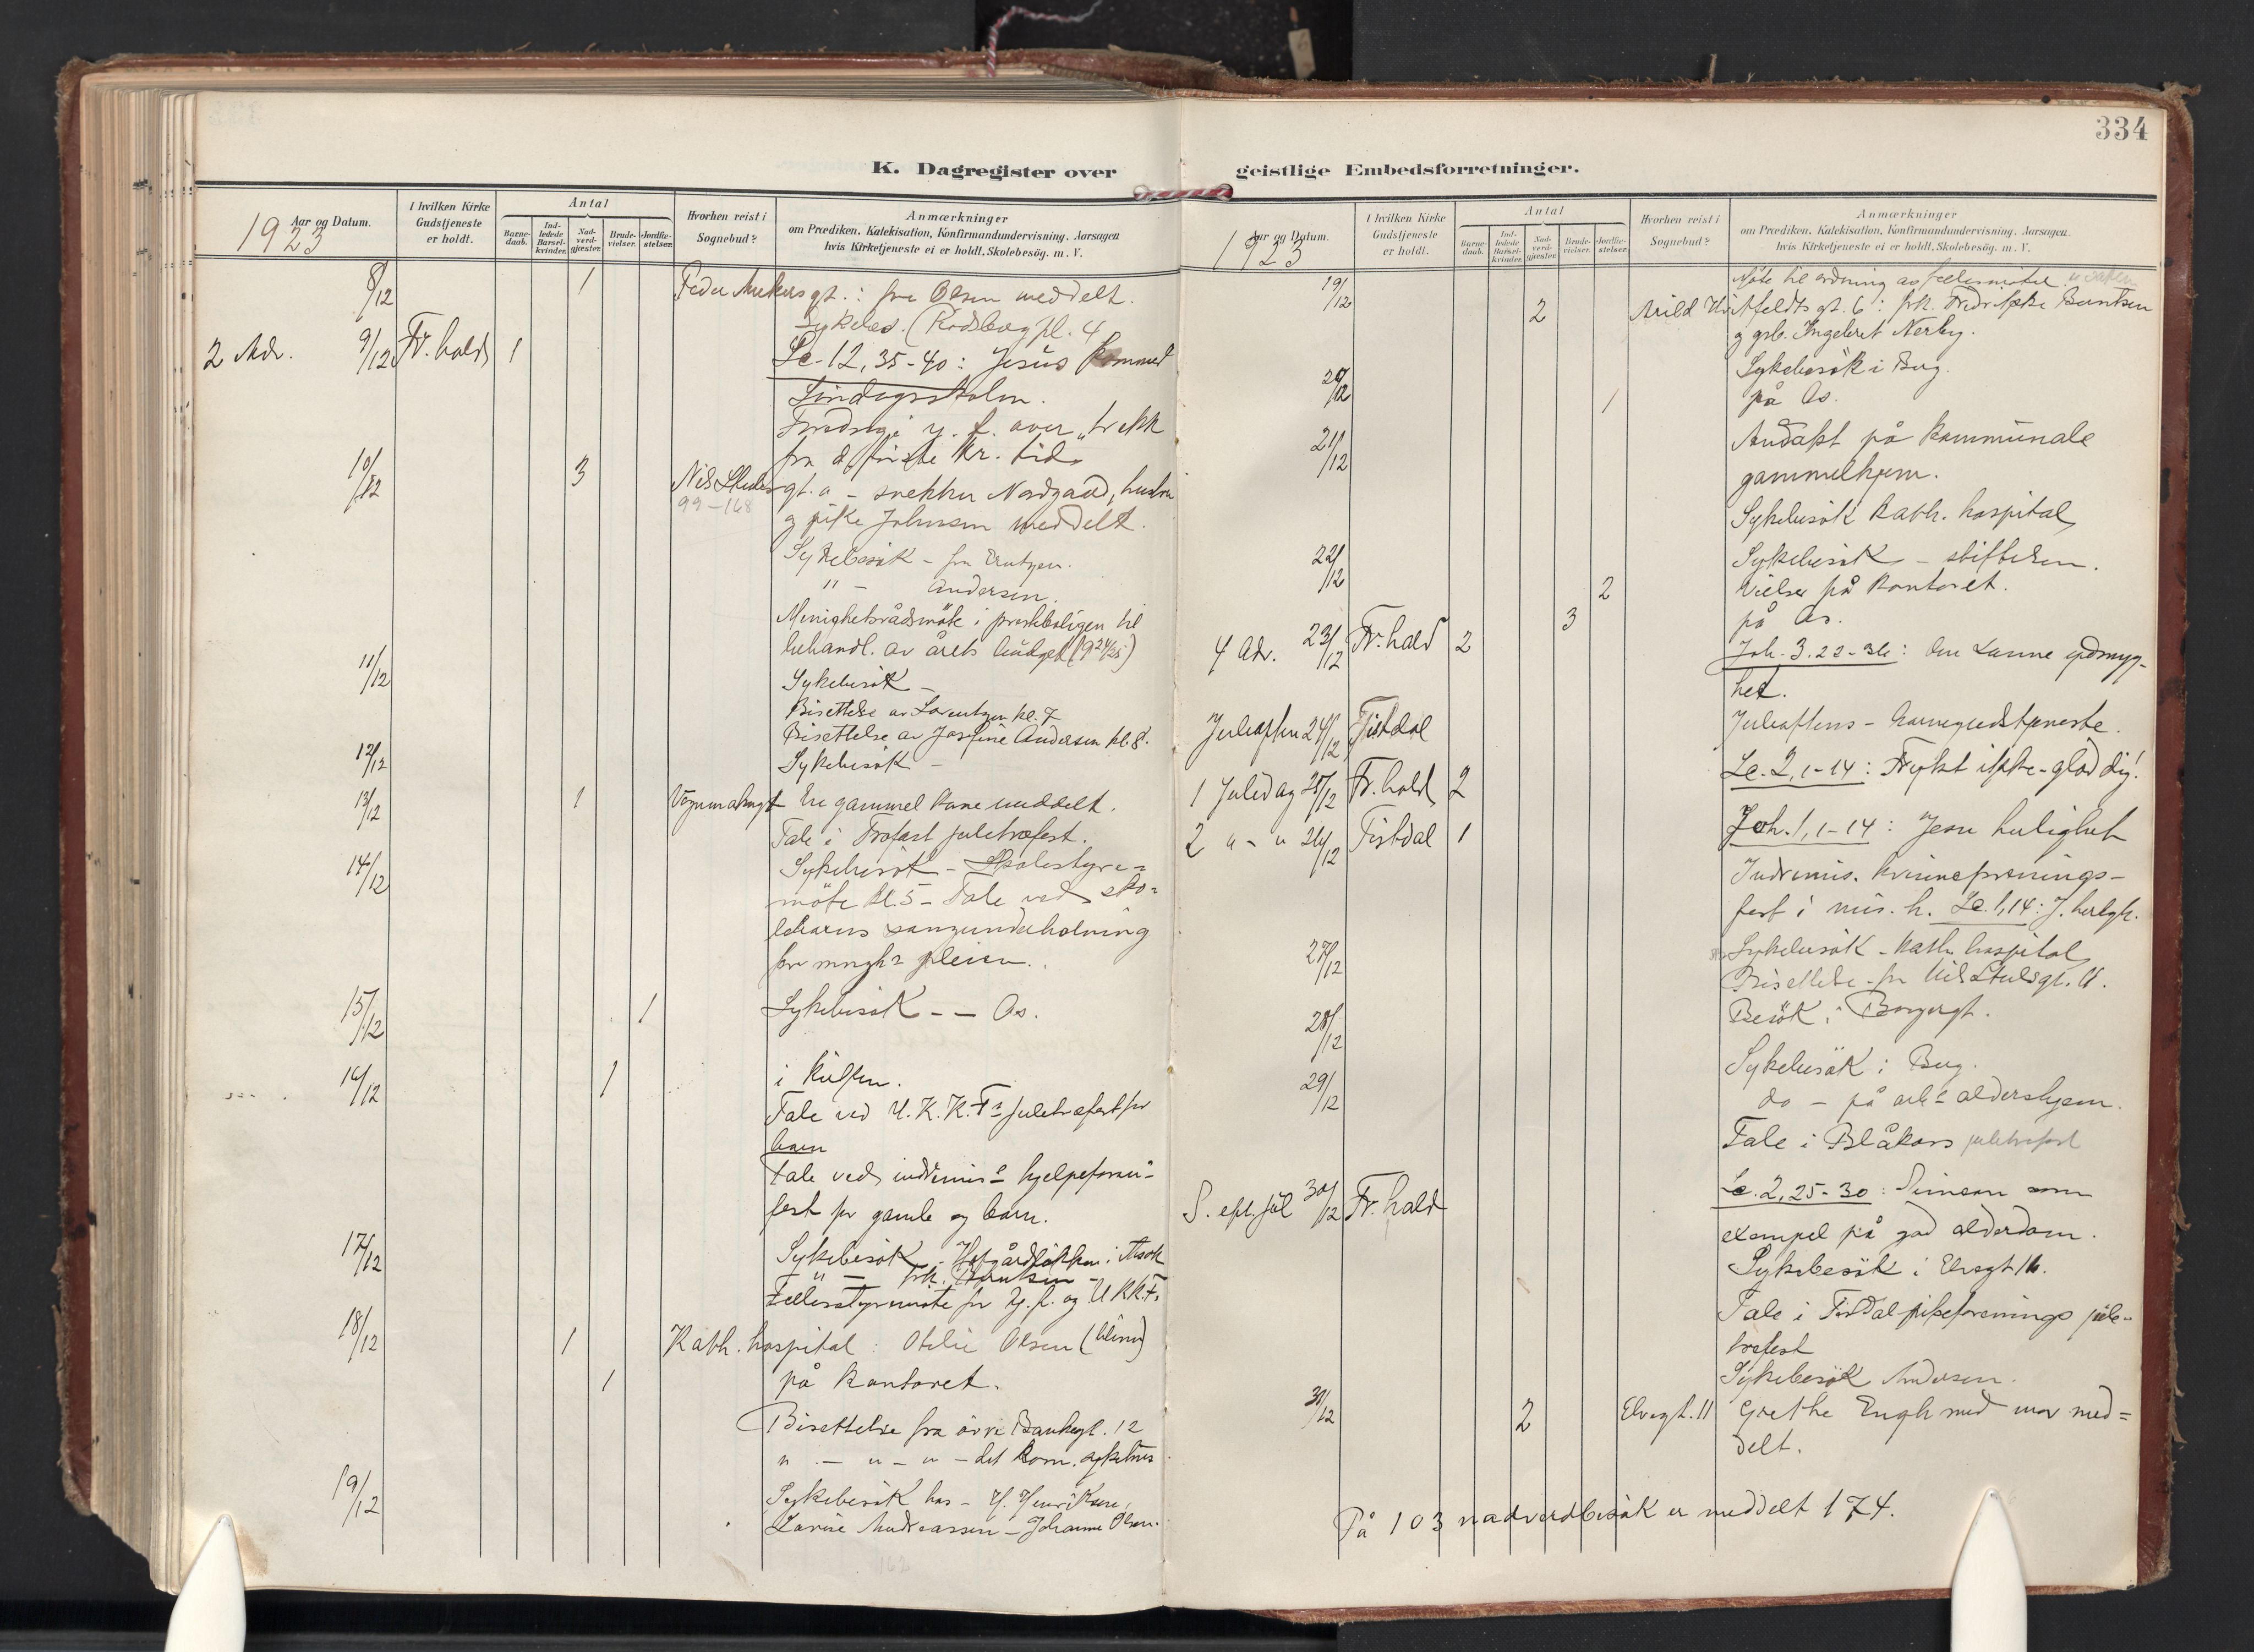 334
K. Dagregister over
geistlige Embedsforretninger.
Aar og Datum.
1923
I hvilken Kirke Gudstjeneste er holdt.
Antal
Barne-daab.
Ind-ledede Barsel-kvinder.
Nad-verd-gjæster.
Brude-vielser.
Jordfæ-stelser.
Hvorhen reist i Sognebud?
Anmærkninger
om Prædiken, Katekisation, Konfirmandundervisning, Aarsagen
hvis Kirketjeneste ei er holdt, Skolebesög. m. V.
8/12 1 gt.: fru Olsen meddelt.
Sykebes. (Rodeløkpl. 4
2 Adv. 9/12 Fr. hald 1 Lc. 12, 35-40: Jesus kommed
Søndagsskolen.
Foredrag i y. f. over "trekk
fra d. første kr. tid.
10/12 3 Nils gt. a - snekker Nordgaard, hustru
99-168
og pike Johnsen meddelt.
Sykebesøk - fru
" - Andersen.
Menighetsrådsmöte i presteboligen til
behandl. av årets budget (1924/25)
11/12 Sykebesök -
Bisettelse av Lorentzen kl. 7
Bisettelse av Josefine Andersen kl. 8.
12/12 Sykebesök -
13/12 1 Vognmakergt En gammel kone meddelt.
Tale i Trofast juletræfest.
14/12 Sykebesök - Skolestyre-
möte kl. 5 - Tale ved sko-
lebarns sangunderholdning
for mnghs pleien.
15/12 1 Sykebesök - - As.
16/12 1 i kirken.
Tale ved U. K. K. Fs juletræfest for
barn
Tale ved indremis s hjelpeforen.
fest for gamle og barn.
17/12 Sykebesök - Hofgårdløkken i Ask
" - frk. Berntsen -
Fellesstyremöte for Y. f. og U K K. F.
18/12 1 Kath. hospital: Otelie Olsen (blind)
1 på kontoret.
Bisettelse fra övre Bankegt. 12
" - " - " - det kom. sykehus
19/12 Sykebesök hos - H. Henriksen,
Lovise Andreassen - Johanne Olsen.
162
Aar og Datum.
1923
I hvilken Kirke Gudstjeneste er holdt.
Antal
Barne-daab.
Ind-ledede Barsel-kvinder.
Nad-verd-gjæster.
Brude-vielser.
Jordfæ-stelser.
Hvorhen reist i Sognebud?
Anmærkninger
om Prædiken, Katekisation, Konfirmandundervisning, Aarsagen
hvis Kirketjeneste ei er holdt, Skolebesög. m. V.
19/12 Möte til ordning av fellesmötet
2 Arild Huitfeldts gt. 6: frk. Fredrikke Berntsen
og grb. Ingebret Nerby.
Sykebesök i Bug.
20/12 1 på As.
21/12 Andakt på kommunale
gammelhjem.
Sykebesök kath. hospital
22/12 Sykebesök - stiftelsen.
2 Vielser på kontoret.
3 på As.
4 Adv. 23/12 Fr. hald 2 Joh. 3. 22-36: den sanne ydmyg-
het.
Juleaften 24/12 Tistdal Juleaftens - barnegudstjeneste.
Lc. 2, 1-14: Frykt ikke - glæd dig!
1 Juledag 25/12 Fr. hald 2 Joh. 1, 1-14: Jesu herlighet
2 " - " 26/12 Tistdal 1
Indremis. kvinneforenings-
fest i mis. h. Lc. 1, 14: J. herlgh.
27/12 Sykebesök - kath. hospital
Bisettelse - fra Nils Stubsgt. 11.
28/12 Besök i Borgergt.
Sykebesök i Bug.
29/12 do - på arb s aldershjem.
Tale i Blåkors juletrefest
S. eft. jul 30/12 Fr. hald Lc. 2, 25-30: Simeon som
exempel på god alderdom.
Sykebesök i Elvegt 11.
Tale i Tistdal pikeforenings jule-
trefest
Sykebesök Andersen.
31/12 2 Elvegt. 11 Grethe Engh med mor med-
delt.
På 103 nadverdbesök er meddelt 174.